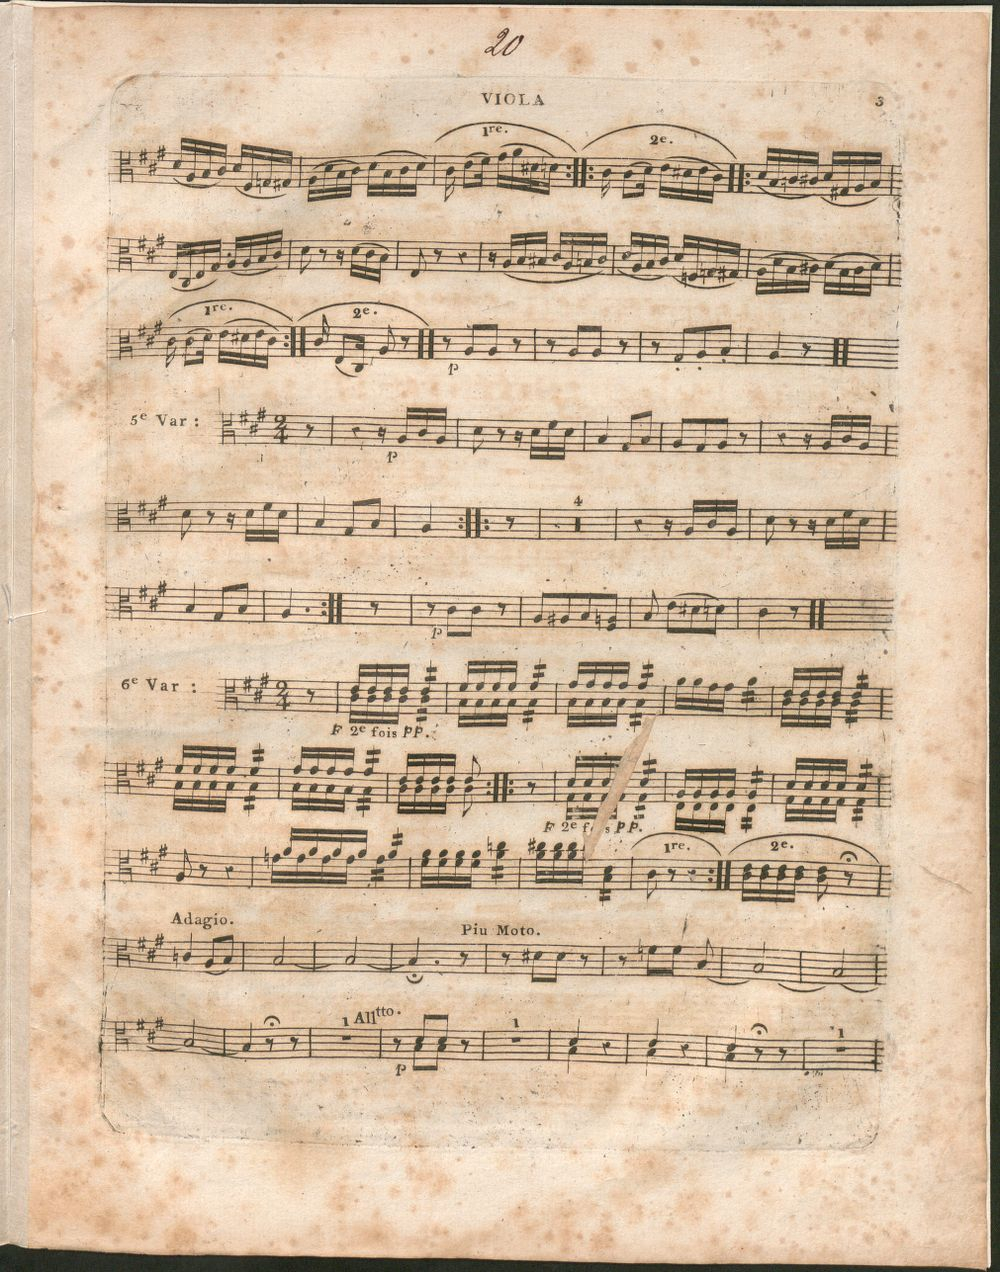 20
VIOLA 3
1re. 2e.
1re. 2e.
p
5e Var : 2/4
p
4
p
6e Var : 2/4
F 2e fois pp.
F 2e fois pp.
1re. 2e.
Adagio. Piu Moto.
1 Alltto. 1 1
p